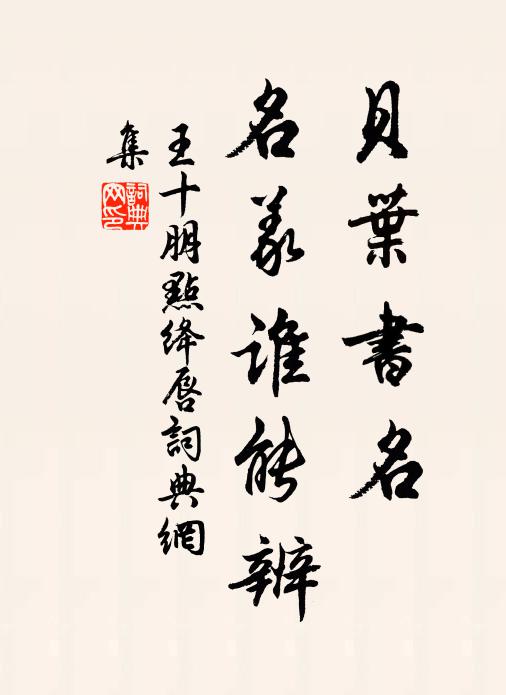 貝葉書名
名義誰能辨
王十朋點絳唇詞典網
集
詞典
网印